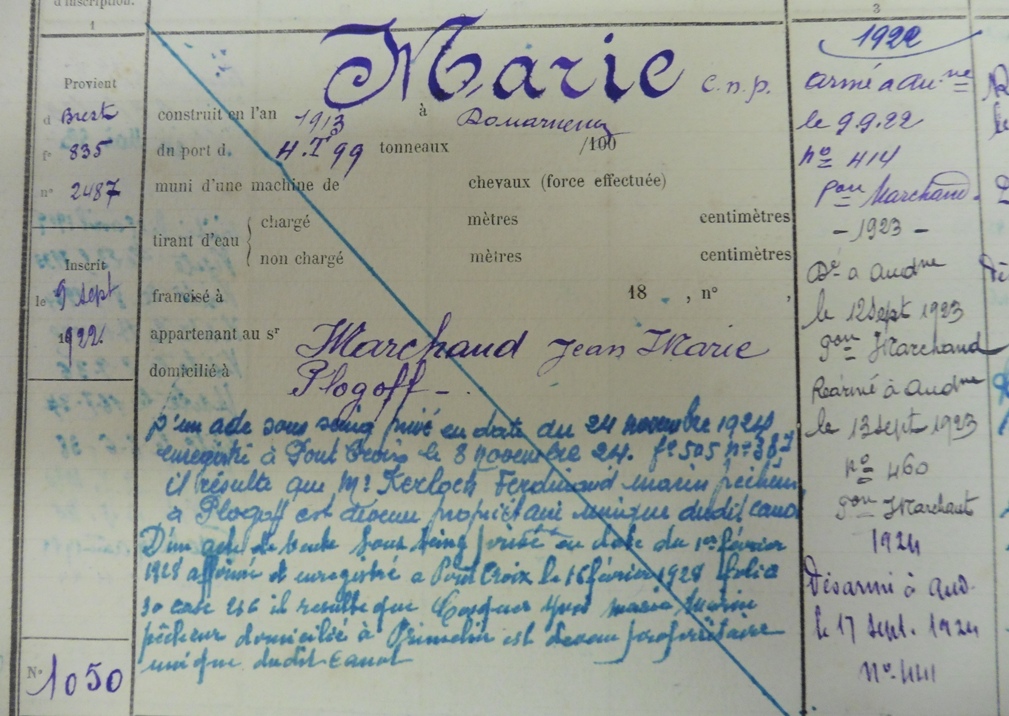 d'inscription.
1
Provient
d Brest
f° 835
n° 2487
Inscrit
le 9 Sept
1922.
N° 1050
Marie c.n.p.
construit en l'an 1913 à Douarnenez
du port d. 4.Tx 99 tonneaux /100
muni d'une machine de chevaux (force effectuée)
tirant d'eau { chargé mètres centimètres
non chargé mètres centimètres
francisé à 18 , n° ,
appartenant au sr Marchand Jean Marie
domicilié à Plogoff -
D'un acte sous seing privé en date du 24 novembre 1924
enregistré à Pont Croix le 8 novembre 24. f° 505 n° 387
il résulte que Mr Kerloch Ferdinand marin pêcheur
à Plogoff est devenu propriétaire unique dudit canot
D'un acte de vente sous seing privé en date du 1er février
1928 affirmé et enregistré à Pont Croix le 16 février 1928 folio
30 case 236 il resulte que Yves marie Marin
pêcheur domicilié à Primelin est devenu propriétaire
unique dudit canot
3
1922
armé a Au.ne
le 9.9.22
no 414
pon Marchand.
- 1923 -
Dé a Audne
le 12 Sept 1923
pon Marchand
Réarmé à Audne
le 13 Sept 1923
no 460
pon Marchand
1924
Désarmé à Aud.
le 17 Sept. 1924
No. 441